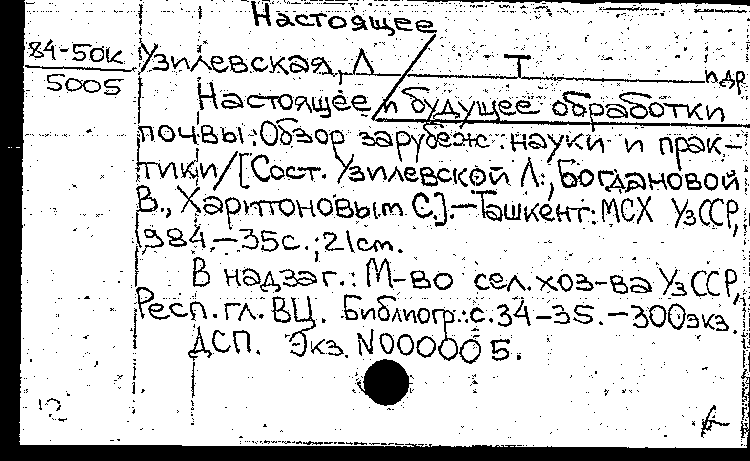 Настоящее
84-50к
5005
Узилевская, Л
Т
и др
Настоящее и будущее обработки
почвы: Обзор зарубеж. науки и прак-
тики/[Сост. Узилевской Л., Богдановой
В., Харитоновым С.].—Ташкент: МСХ УзССР,
1984.—35с.; 21см.
В надзаг.: М-во сел. хоз-ва УзССР,
Респ. гл. ВЦ. Библиогр.: с.34-35.—300экз.
ДСП. Экз. N000005.
12